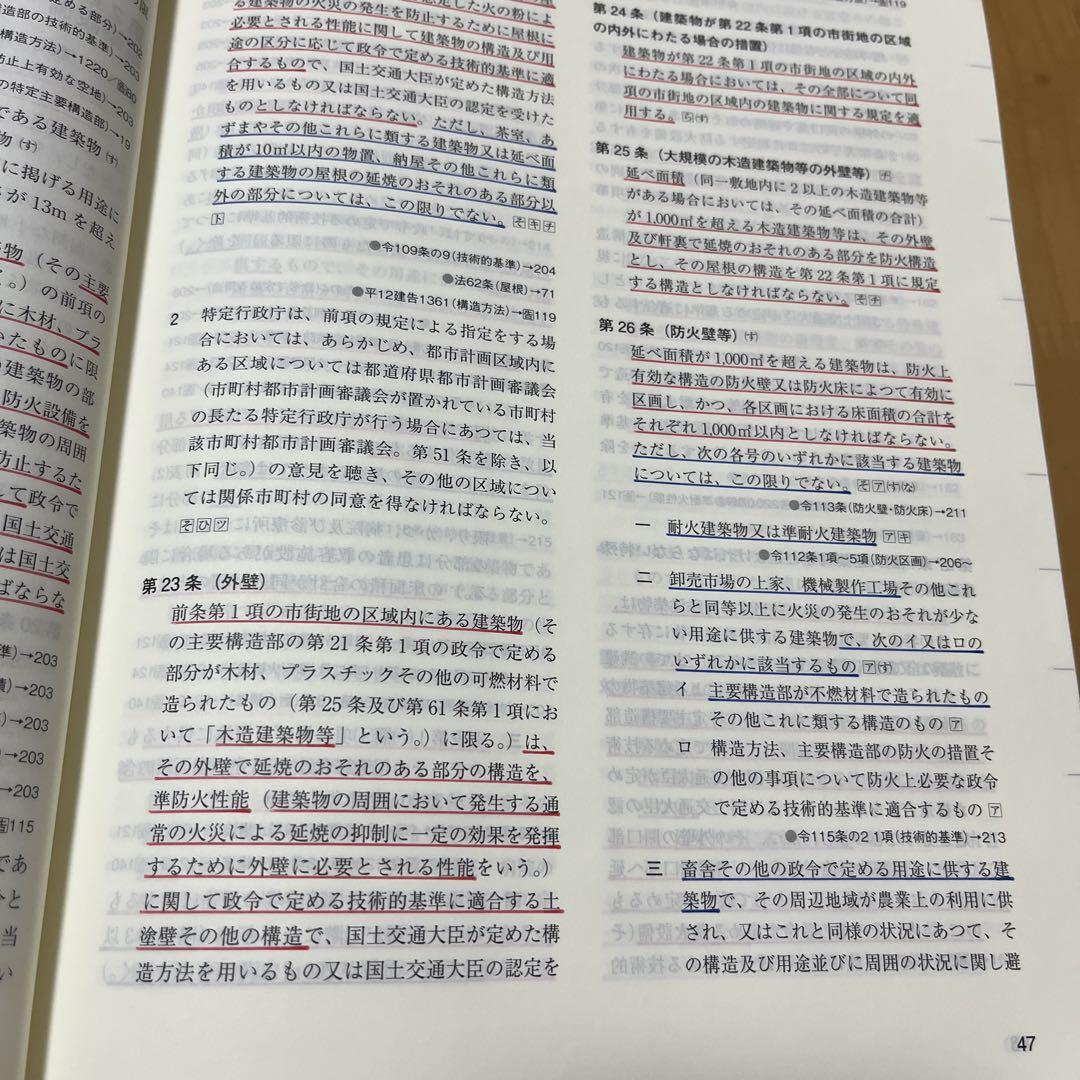 定める部分)→202
構造の技術的基準)→203
構造方法)→1220／告80
防止上有効な空地)→203
の特定主要構造部)→19
である建築物 (す)
物 (す)
に掲げる用途に
さが 13m を超え
物 (その主要
。) の前項の
に木材、プラ
たものに限
建築物の部
防火設備を
築物の周囲
防止するた
して政令で
国土交通
は国土交
ばならな
準)→203
積)→203
→203
→203
→203
告115
であ
当
い
建築物の火災の発生を防止するために屋根に
必要とされる性能に関して建築物の構造及び用
途の区分に応じて政令で定める技術的基準に適
合するもので、国土交通大臣が定めた構造方法
を用いるもの又は国土交通大臣の認定を受けた
ものとしなければならない。ただし、茶室、あ
ずまやその他これらに類する建築物又は延べ面
積が10㎡以内の物置、納屋その他これらに類
する建築物の屋根の延焼のおそれのある部分以
外の部分については、この限りでない。そキチ
ト
●令109条の9(技術的基準)→204
●法62条(屋根)→71
●平12建告1361(構造方法)→告119
2 特定行政庁は、前項の規定による指定をする場
合においては、あらかじめ、都市計画区域内に
ある区域については都道府県都市計画審議会
(市町村都市計画審議会が置かれている市町村
の長たる特定行政庁が行う場合にあつては、当
該市町村都市計画審議会。第 51 条を除き、以
下同じ。) の意見を聴き、その他の区域につい
ては関係市町村の同意を得なければならない。
そひツ
第 23 条 (外壁)
前条第 1 項の市街地の区域内にある建築物 (そ
の主要構造部の第 21 条第 1 項の政令で定める
部分が木材、プラスチックその他の可燃材料で
造られたもの (第 25 条及び第 61 条第 1 項にお
いて「木造建築物等」という。) に限る。) は、
その外壁で延焼のおそれのある部分の構造を、
準防火性能 (建築物の周囲において発生する通
常の火災による延焼の抑制に一定の効果を発揮
するために外壁に必要とされる性能をいう。)
に関して政令で定める技術的基準に適合する土
塗壁その他の構造で、国土交通大臣が定めた構
造方法を用いるもの又は国土交通大臣の認定を
→告119
第 24 条 (建築物が第 22 条第 1 項の市街地の区域
の内外にわたる場合の措置)
建築物が第 22 条第 1 項の市街地の区域の内外
にわたる場合においては、その全部について同
項の市街地の区域内の建築物に関する規定を適
用する。ら(す)
第 25 条 (大規模の木造建築物等の外壁等) チ
延べ面積 (同一敷地内に 2 以上の木造建築物等
がある場合においては、その延べ面積の合計)
が 1,000㎡を超える木造建築物等は、その外壁
及び軒裏で延焼のおそれのある部分を防火構造
とし、その屋根の構造を第 22 条第 1 項に規定
する構造としなければならない。そチ
第 26 条 (防火壁等) (す)
延べ面積が 1,000㎡を超える建築物は、防火上
有効な構造の防火壁又は防火床によつて有効に
区画し、かつ、各区画における床面積の合計を
それぞれ 1,000㎡以内としなければならない。
ただし、次の各号のいずれかに該当する建築物
については、この限りでない。そア(す)(な)
●令113条(防火壁・防火床)→211
一 耐火建築物又は準耐火建築物 アキ
●令112条1項～5項(防火区画)→206～
二 卸売市場の上家、機械製作工場その他これ
らと同等以上に火災の発生のおそれが少な
い用途に供する建築物で、次のイ又はロの
いずれかに該当するもの ア(す)
イ 主要構造部が不燃材料で造られたもの
その他これに類する構造のもの ア
ロ 構造方法、主要構造部の防火の措置そ
の他の事項について防火上必要な政令
で定める技術的基準に適合するもの ア
●令115条の2 1項(技術的基準)→213
三 畜舎その他の政令で定める用途に供する建
築物で、その周辺地域が農業上の利用に供
され、又はこれと同様の状況にあつて、そ
の構造及び用途並びに周囲の状況に関し避
47